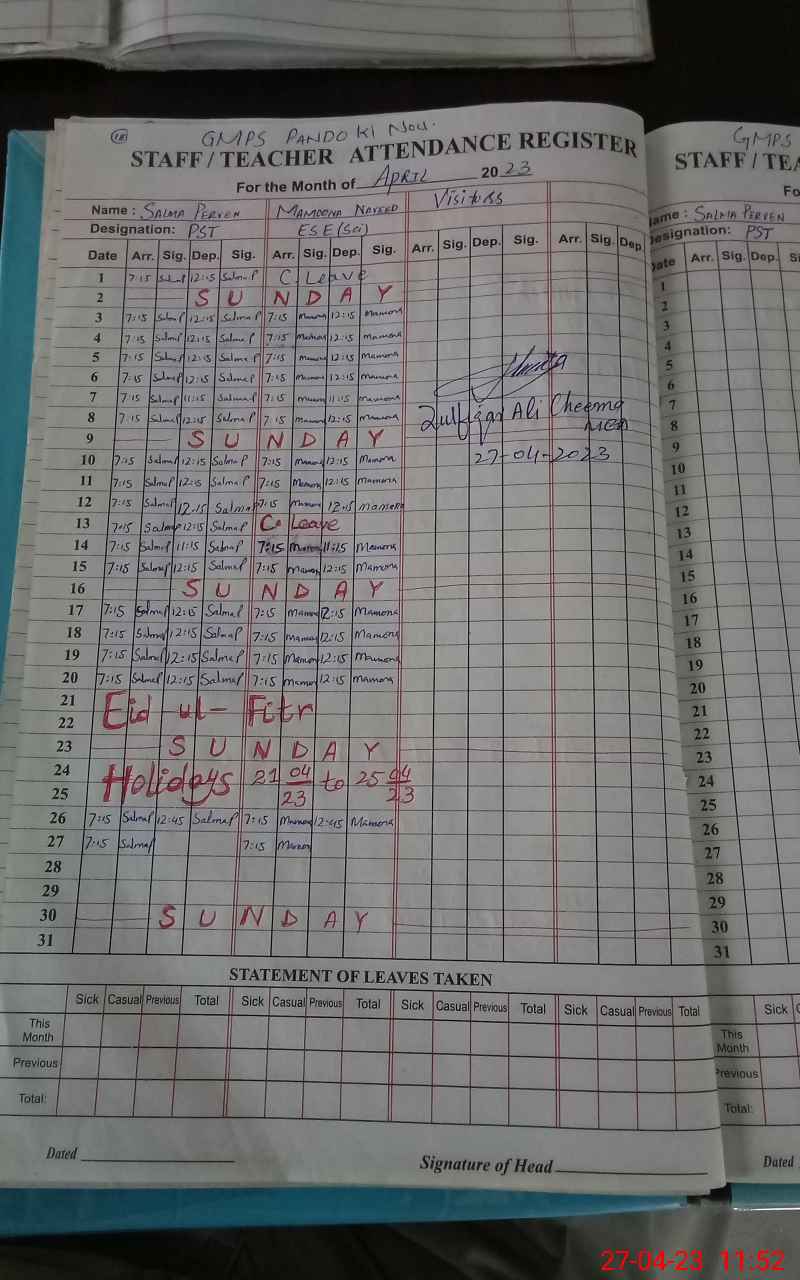 18
GMPS PANDO KI Nou.
STAFF / TEACHER ATTENDANCE REGISTER
For the Month of APRIL 2023
Name : SALMA PERVEN MAMOONA NAVEED Visitors
Designation: PST ESE (Sci)
Date Arr. Sig. Dep. Sig. Arr. Sig. Dep. Sig. Arr. Sig. Dep. Sig. Arr. Sig. Dep.
1 7:15 12:15 Salma P C. Leave
2 S U N D A Y
3 7:15 Salma 12:15 Salma P 7:15 Mamona 12:15 Mamona
4 7:15 Salma 12:15 Salma P 7:15 Mamona 12:15 Mamona
5 7:15 Salma 12:15 Salma P 7:15 Mamona 12:15 Mamona
6 7:15 Salma 12:15 Salma P 7:15 Mamona 12:15 Mamona
7 7:15 Salma P 11:15 Salma P 7:15 Mamona 11:15 Mamona
8 7:15 Salma P 12:15 Salma P 7:15 Mamona 12:15 Mamona
Zulfiqar Ali Cheema
MEA
9 S U N D A Y
27-04-2023
10 7:15 Salma P 12:15 Salma P 7:15 Mamona 12:15 Mamona
11 7:15 Salma P 12:15 Salma P 7:15 Mamona 12:15 Mamona
12 7:15 Salma P 12:15 Salma P 7:15 Mamona 12:15 Mamona
13 7:15 Salma P 12:15 Salma P C. Leave
14 7:15 Salma P 11:15 Salma P 7:15 Mamona 11:15 Mamona
15 7:15 Salma P 12:15 Salma P 7:15 Mamona 12:15 Mamona
16 S U N D A Y
17 7:15 Salma P 12:15 Salma P 7:15 Mamona 12:15 Mamona
18 7:15 Salma P 12:15 Salma P 7:15 Mamona 12:15 Mamona
19 7:15 Salma P 12:15 Salma P 7:15 Mamona 12:15 Mamona
20 7:15 Salma P 12:15 Salma P 7:15 Mamona 12:15 Mamona
21
Eid-ul-Fitr
22
23 S U N D A Y
24
Holidays 21 04/23 to 25 04/23
25
26 7:15 Salma P 12:45 Salma P 7:15 Mamona 12:45 Mamona
27 7:15 Salma P 7:15 Mamona
28
29
30 S U N D A Y
31
STATEMENT OF LEAVES TAKEN
Sick Casual Previous Total Sick Casual Previous Total Sick Casual Previous Total Sick Casual Previous Total
This Month
Previous
Total:
Dated
Signature of Head
GMPS
STAFF / TEA
Fo
ame : SALMA PERVEN
esignation: PST
ate Arr. Sig. Dep. Si
1
2
3
4
5
6
7
8
9
10
11
12
13
14
15
16
17
18
19
20
21
22
23
24
25
26
27
28
29
30
31
Sick C
This Month
Previous
Total:
Dated
27-04-23 11:52